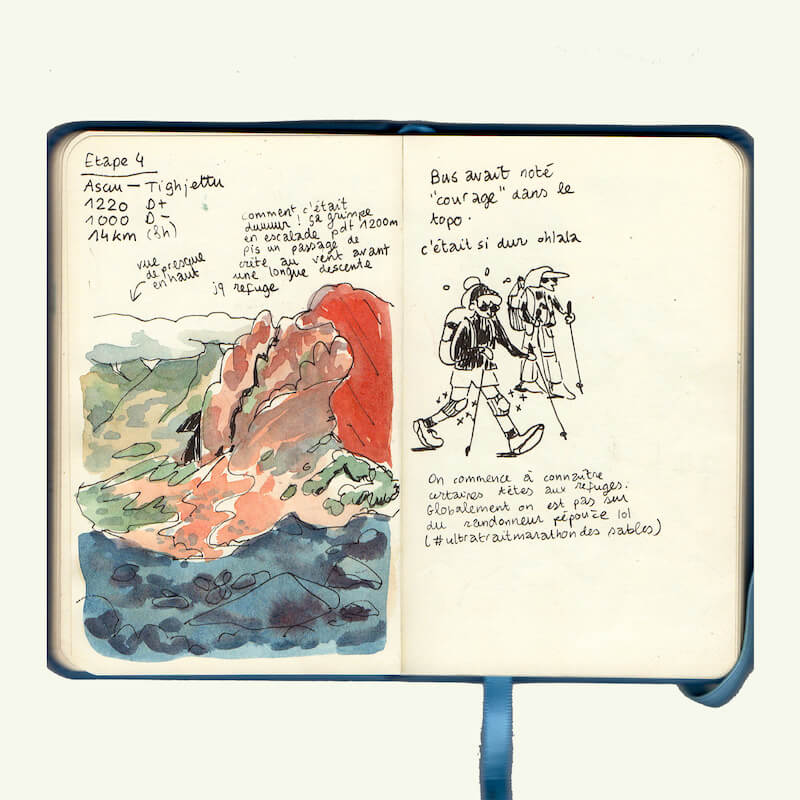 Etape 4
Ascu — Tighjettu
1220 D+
1000 D-
14km (8h)
comment c'était
duuuur ! ça grimpe
en escalade pdt 1200m
pis un passage de
crête au vent avant
une longue descente
jq refuge
vue
de presque
en haut
Bus avait noté
"courage" dans le
topo.
c'était si dur ohlala
On commence à connaître
certaines têtes aux refuges.
Globalement on est pas sur
du randonneur pépouze lol
(#ultratraitmarathondes sables)